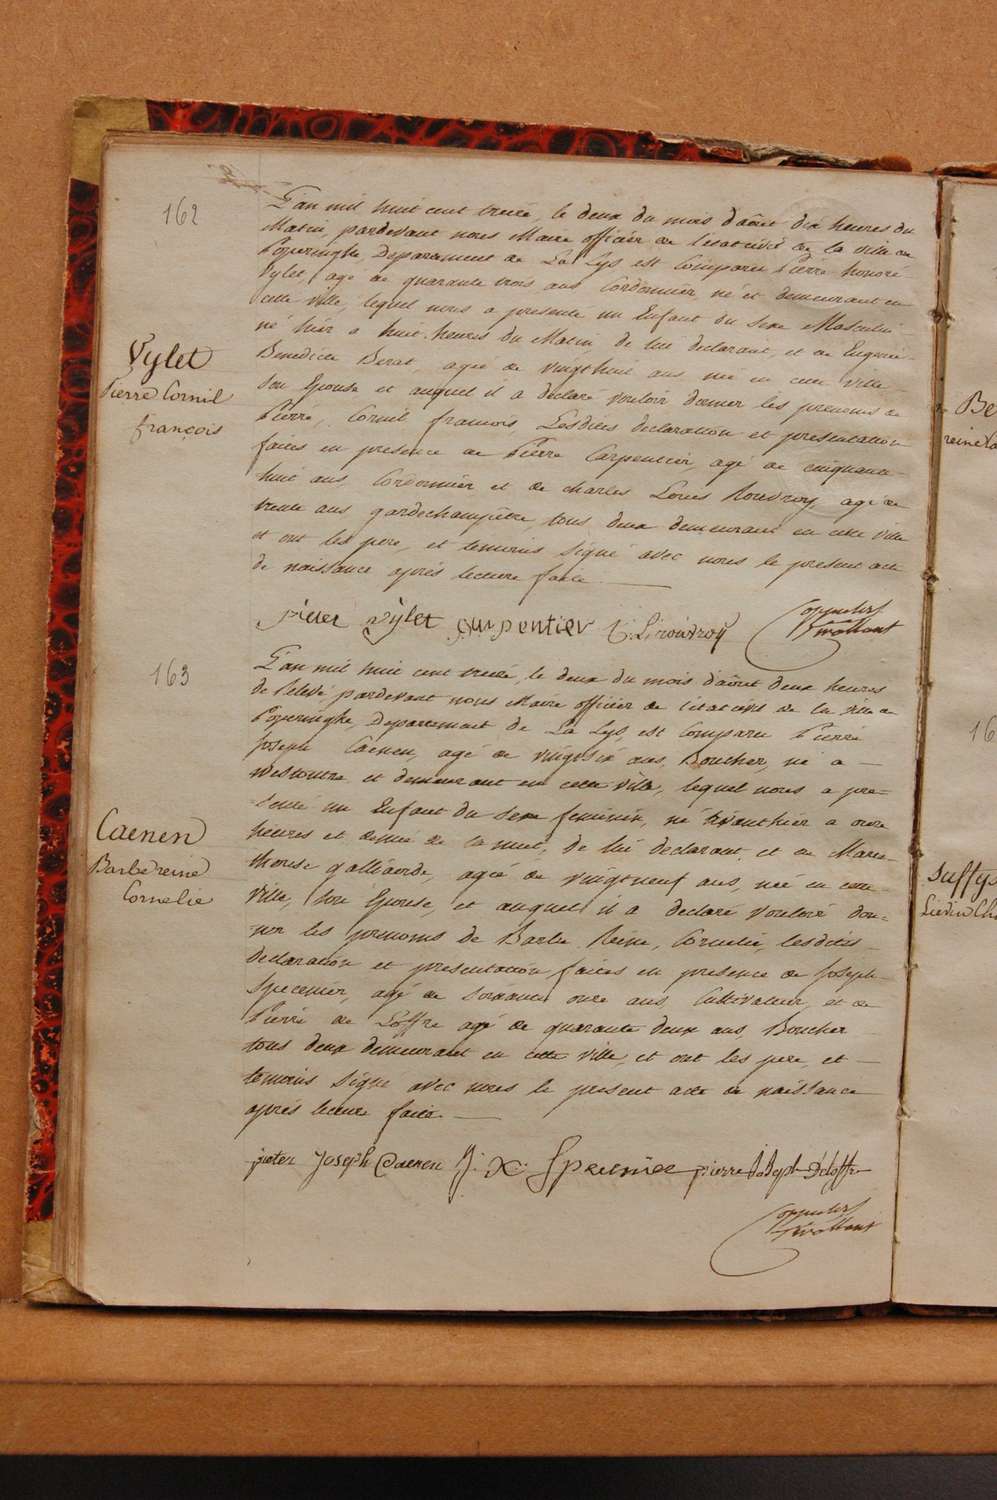 162
L'an mil huit cent treize, le deux du mois d'août dix heures du
Matin, pardevant nous Maire officier de l'etat civil de la ville de
Poperinghe, Departement de La Lys est Comparu Pierre honoré
Vylet, agé de quarante trois ans Cordonnier, né et demeurant en
cette ville, lequel nous a presenté un Enfant du Sexe Masculin
né hier a huit heures du Matin de lui declarant, et de Eugenie
Vylet
Benedicte Berat, agée de vingthuit ans née en cette ville
Pierre Cornil
Son Epouse et auquel il a declaré vouloir donner les prenoms de
françois
Pierre, Cornil francois, Lesdites declaration et presentation
faites en presence de Pierre Carpentier, agé de cinquante
huit ans, Cordonnier et de charles Louis Rouvroy, agé de
trente ans gardechampetre, tous deux demeurant en cette ville
et ont les pere, et temoins signé avec nous le present acte
de naissance après lecture faite
pieter vylet carpentier C: L: rouvroy
163
L'an mil huit cent treize, le deux du mois d'août deux heures
de relevé, pardevant nous Maire officier de l'etat civil de la ville de
Poperinghe, Departement de La Lys, est Comparu Pierre
Joseph Caenen, agé de vingtsix ans, Boucher, né a
Westoutre et demeurant en cette ville, lequel nous a pre=
senté un Enfant du Sexe feminin, né avanthier a onze
Caenen
heures et demie de la nuit, de lui declarant, et de Marie
Barbe reine
therese galliaerde, agée de vingtneuf ans, née en cette
Cornelie
ville, Son Epouse, et auquel il a declaré vouloir don=
ner les prenoms de Barbe Reine, Cornelie, lesdites
declaration et presentation faites en presence de Joseph
Spreenier, agé de Soixante onze ans Cultivateur, et de
Pierre de Loffre agé de quarante deux ans Boucher
tous deux demeurant en cette ville, et ont les pere, et
temoins Signé avec nous le present acte de naissance
après lecture faite
pieter Joseph Caenen J: X: Spreniee pierre Joseph Deloffre
Be
reine
16
Suffys
Lievin Ch